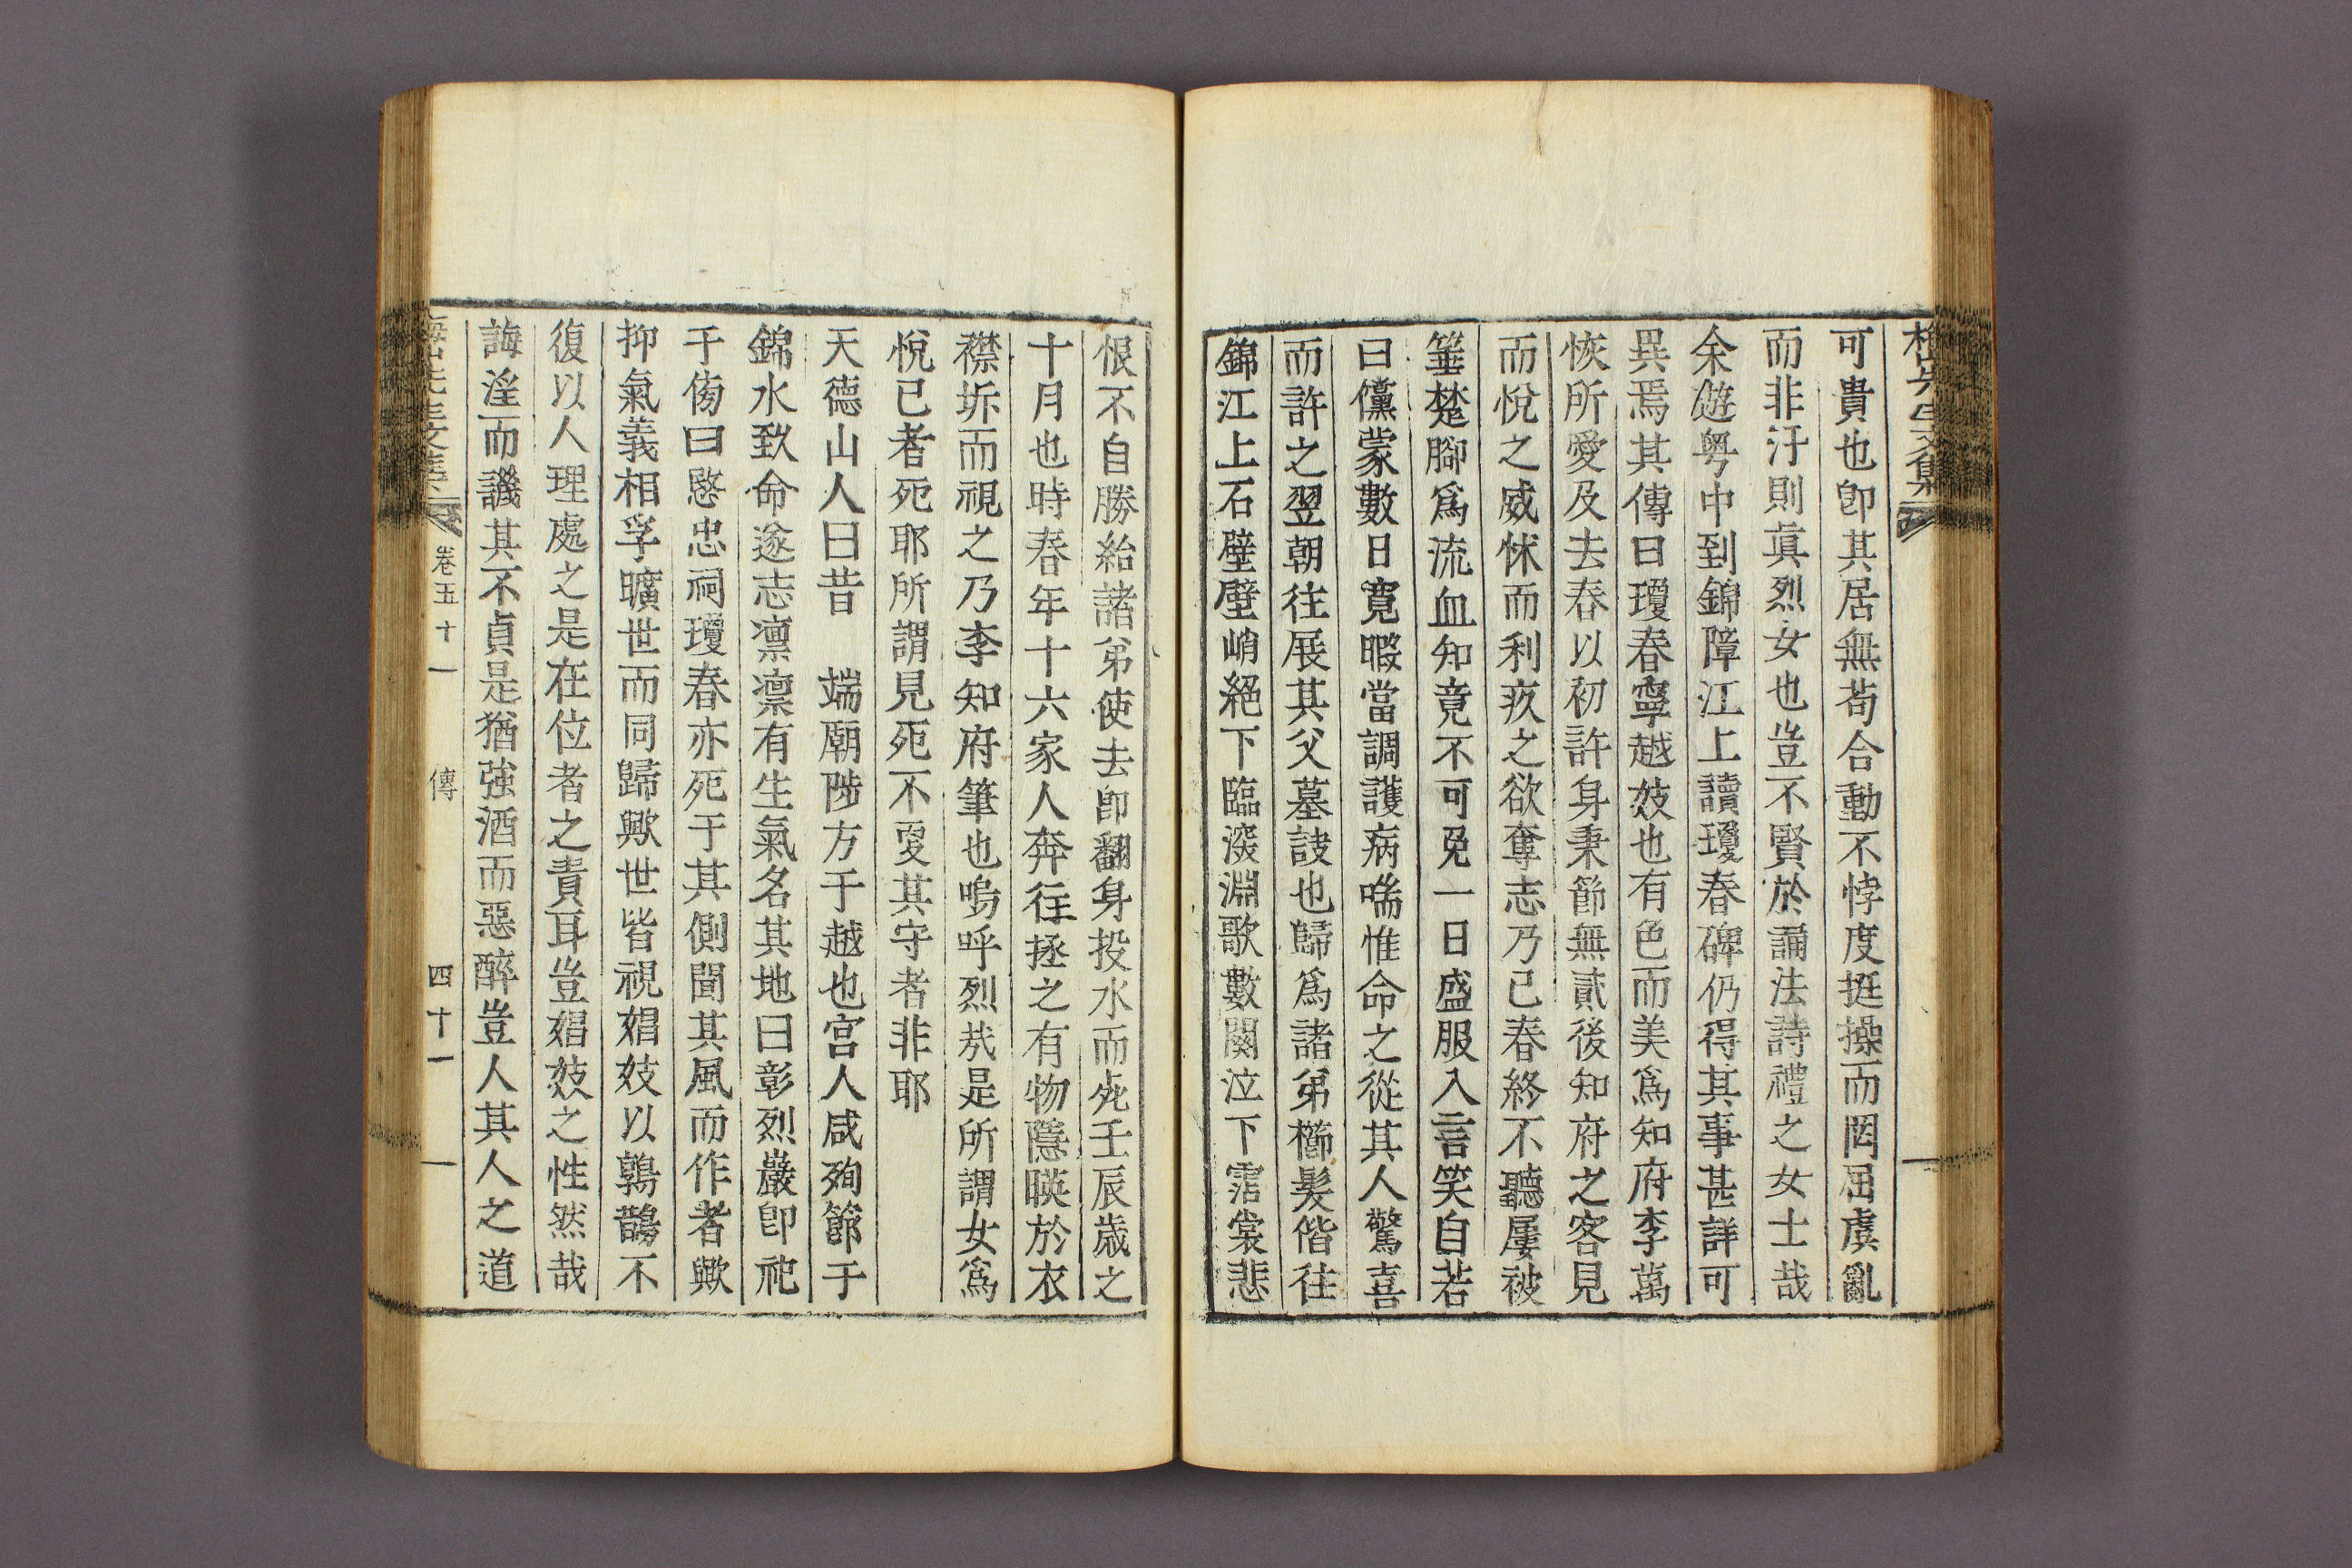 可貴也卽其居無苟合動不悖度挺操而罔屈虞亂
而非汙則眞烈女也豈不賢於誦法詩禮之女士哉
余遊粤中到錦障江上讀瓊春碑仍得其事甚詳可
異焉其傳曰瓊春寧越妓也有色而美爲知府李萬
恢所愛及去春以初許身秉節無貳後知府之客見
而悅之威怵而利疚之欲奪志乃已春終不聽屢被
箠楚腳爲流血知竟不可免一日盛服入言笑自若
曰儻蒙數日寛暇當調護病喘惟命之從其人驚喜
而許之翌朝往展其父墓訣也歸爲諸弟櫛髮偕往
錦江上石壁壁峭絕下臨深淵歌數闋泣下霑裳悲
恨不自勝紿諸弟使去卽翻身投水而死壬辰歲之
十月也時春年十六家人奔往拯之有物隱暎於衣
襟坼而視之乃李知府筆也嗚呼烈哉是所謂女爲
悅已者死耶所謂見死不更其守者非耶
天德山人曰昔 端廟陟方于越也宮人咸殉節于
錦水致命遂志凛凛有生氣名其地曰彰烈巖卽祀
于傍曰愍忠祠瓊春亦死于其側聞其風而作者歟
抑氣義相孚曠世而同歸歟世皆視娼妓以鶉鵲不
復以人理處之是在位者之責耳豈娼妓之性然哉
誨淫而譏其不貞是猶強酒而惡醉豈人其人之道
先生文集 卷五十一 傳 四十一